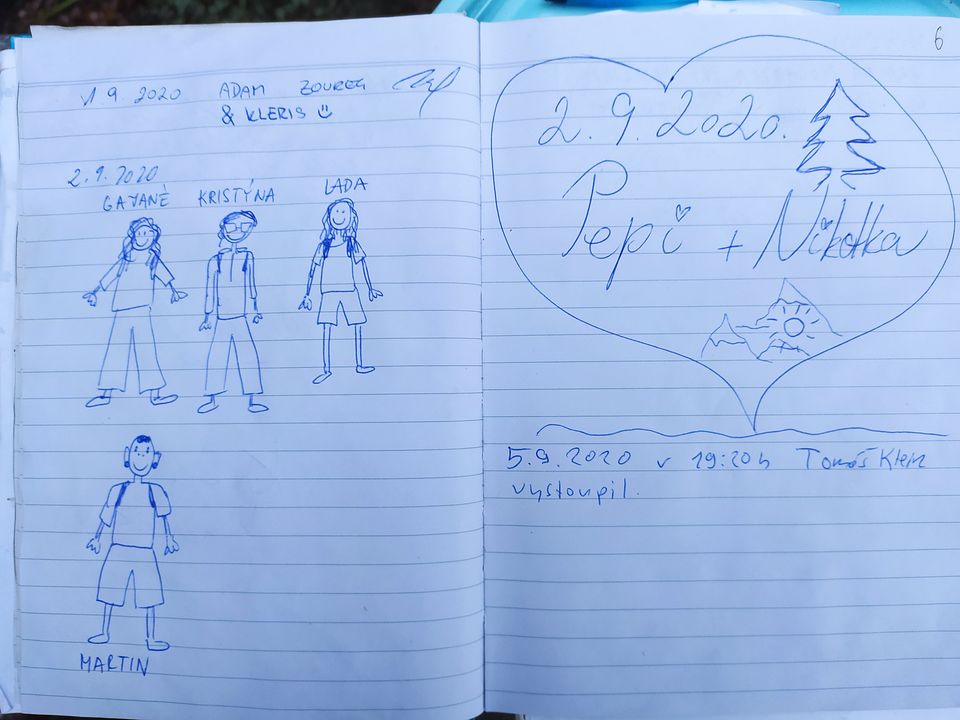 1.9.2020 ADAM ZOUREG
& KLERIS
2.9.2020
GAYANÉ KRISTÝNA LADA
MARTIN
6
2.9.2020.
Pepi + Nikolka
5.9.2020 v 19:20h Tomáš
vystoupil.